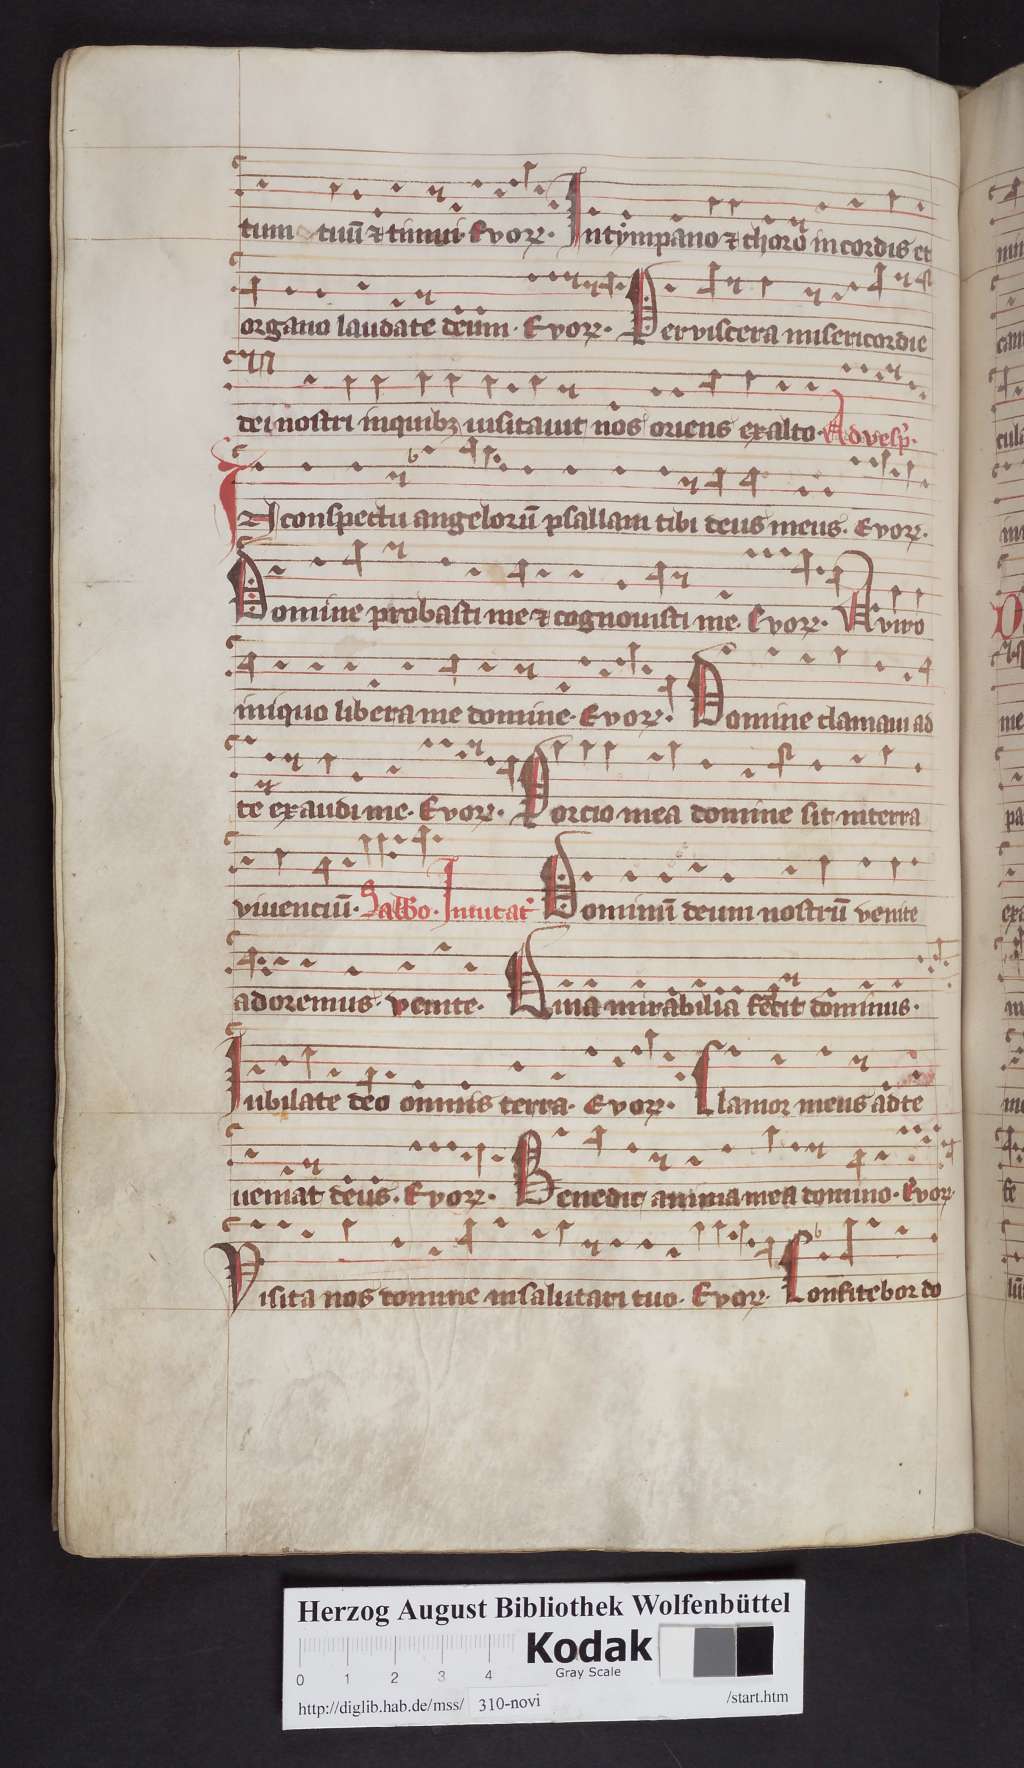 tum tuū ⁊ timui. Evoꝝ. In tÿmpano ⁊ choro in cordis et
organo laudate deum. Evoꝝ. Per viscera misericordie
dei nostri in quibꝫ uisitauit nos oriens ex alto. Ad vesp̄.
In conspectu angelorū psallam tibi deus meus. Evoꝝ.
Domine probasti me ⁊ cognouisti me. Evoꝝ. A viro
iniquo libera me domine. Evoꝝ. Domine clamaui ad
te exaudi me. Evoꝝ. Porcio mea domine sit in terra
viuenciū. Sabbo. Inuitat̄ Dominū deum nostrū venite
adoremus. venite. Quia mirabilia fecit dominus.
Iubilate deo omnis terra. Evoꝝ. Clamor meus ad te
ueniat deus. Evoꝝ. Benedic anima mea domino. Evoꝝ.
Visita nos domine in salutari tuo. Evoꝝ. Confitebor do
Herzog August Bibliothek Wolfenbüttel
Kodak
Gray Scale
0 1 2 3 4
http://diglib.hab.de/mss/ 310-novi /start.htm